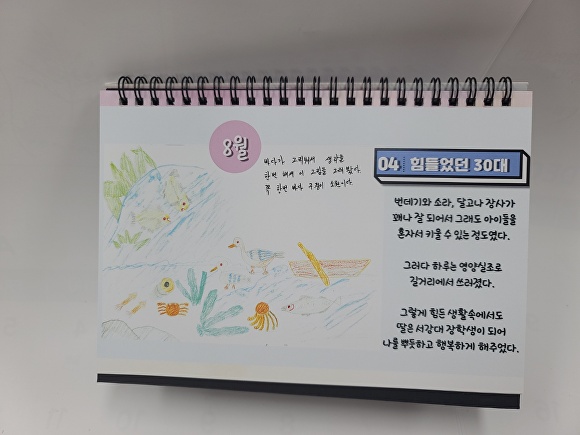 8월
바다가 그리워서 생각을
한번 해서 이 그림을 그려 봤다.
꼭 한번 바다 구경이 소원이다.
04 힘들었던 30대
번데기와 소라, 달고나 장사가
꽤나 잘 되어서 그래도 아이들을
혼자서 키울 수 있는 정도였다.
그러다 하루는 영양실조로
길거리에서 쓰러졌다.
그렇게 힘든 생활속에서도
딸은 서강대 장학생이 되어
나를 뿌듯하고 행복하게 해주었다.